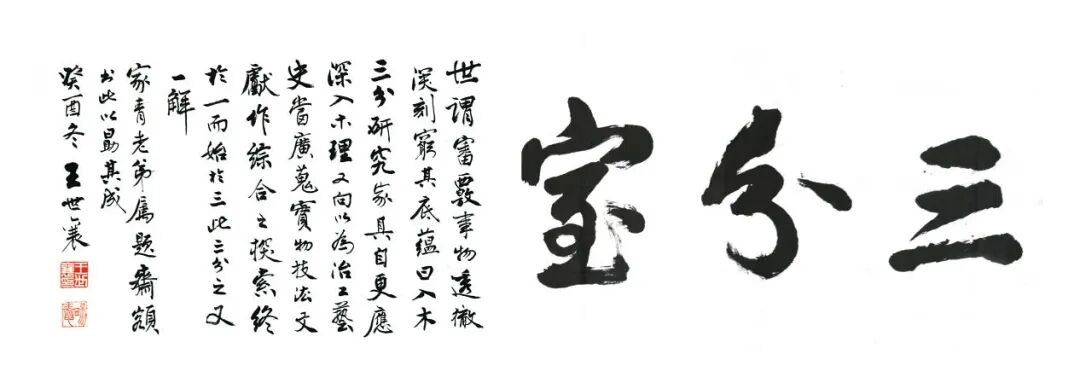 三分室
世謂審覈事物透徹
深刻窮其底蘊曰入木
三分研究家具自更應
深入木理又向以為治工藝
史當廣蒐實物技法文
獻作綜合之探索終
於一而始於三此三分之又
一解
家青老弟屬題齋額
書此以勗其成
癸酉冬 王世襄